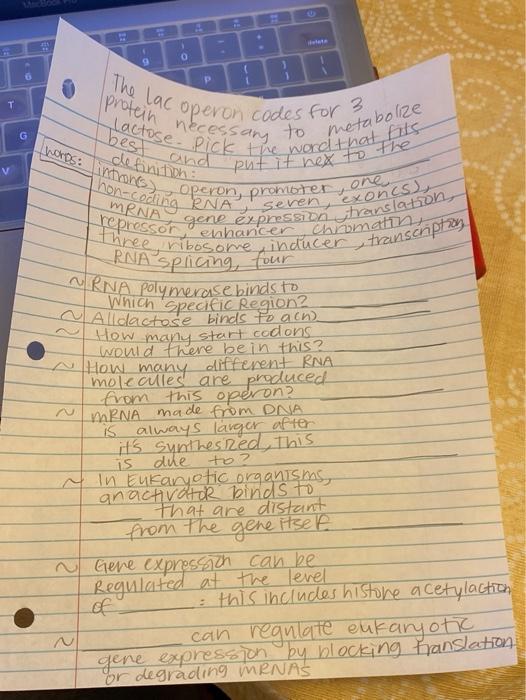 MacBook Pro
delete
6
9
0
P
T
G
V
The lac operon codes for 3
protein necessary to metabolize
lactose. Pick the word that fits
best and put it nex to the
definition:
words:
intron(s), operon, promoter, one,
non-coding RNA, seven, exon(s),
mRNA, gene expression, translation,
repressor, enhancer, chromatin,
three, ribosome, inducer, transcription
RNA splicing, four
~ RNA polymerase binds to
which specific Region?
~ Alldactose binds to a(n)
~ How many start codons
would there be in this?
~ How many different RNA
molecules are produced
from this operon?
~ mRNA made from DNA
is always larger after
it's synthesized, This
is due to?
~ In Eukaryotic organisms,
an activator binds to
____ that are distant
from the gene itself.
~ Gene expression can be
Regulated at the level
of ____: this includes histone acetylaction
~ ____ can regulate eukaryotic
gene expression by blocking translation
or degrading mRNAs